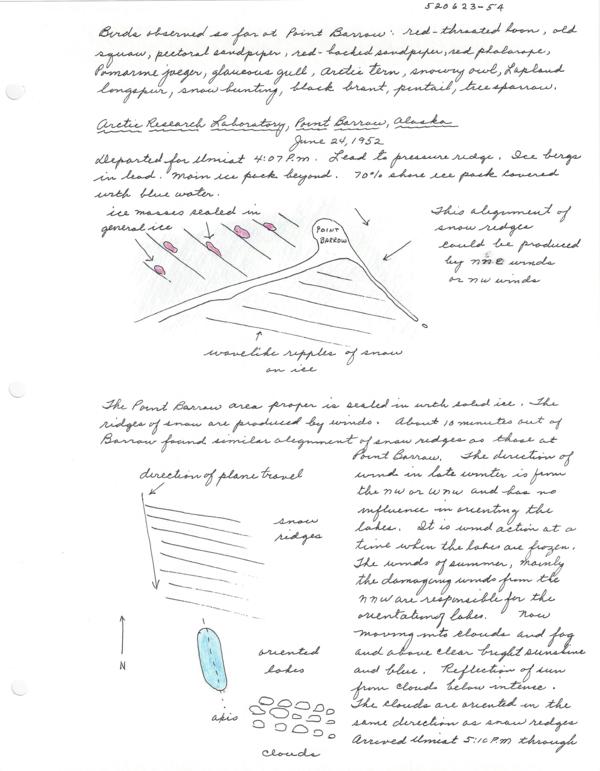 520623-54
Birds observed so far at Point Barrow: red-throated loon, old
squaw, pectoral sandpiper, red-backed sandpiper, red phalarope,
Pomarine jaeger, glaucous gull, Arctic tern, snowy owl, Lapland
longspur, snow bunting, black brant, pintail, tree sparrow.
Arctic Research Laboratory, Point Barrow, Alaska
June 24, 1952
Departed for Umiat 4:07 P.M. Lead to pressure ridge. Ice bergs
in lead. Main ice pack beyond. 70% shore ice pack covered
with blue water.
ice masses sealed in
general ice
POINT
BARROW
This alignment of
snow ridges
could be produced
by winds
or NW winds
wavelike ripples of snow
on ice
The Point Barrow area proper is sealed in with solid ice. The
ridges of snow are produced by winds. About 10 minutes out of
Barrow found similar alignment of snow ridges as those at
Point Barrow. The direction of
wind in late winter is from
the NW or WNW and has no
influence in orienting the
lakes. It is wind action at a
time when the lakes are frozen.
The winds of summer, mainly
the damaging winds from the
NNW are responsible for the
orientation of lakes. Now
moving into clouds and fog
and above clear bright sunshine
and blue. Reflection of sun
from clouds below intense.
The clouds are oriented in the
same direction as snow ridges
Arrived Umiat 5:10 P.M through
direction of plane travel
snow
ridges
N
oriented
lakes
axis
clouds